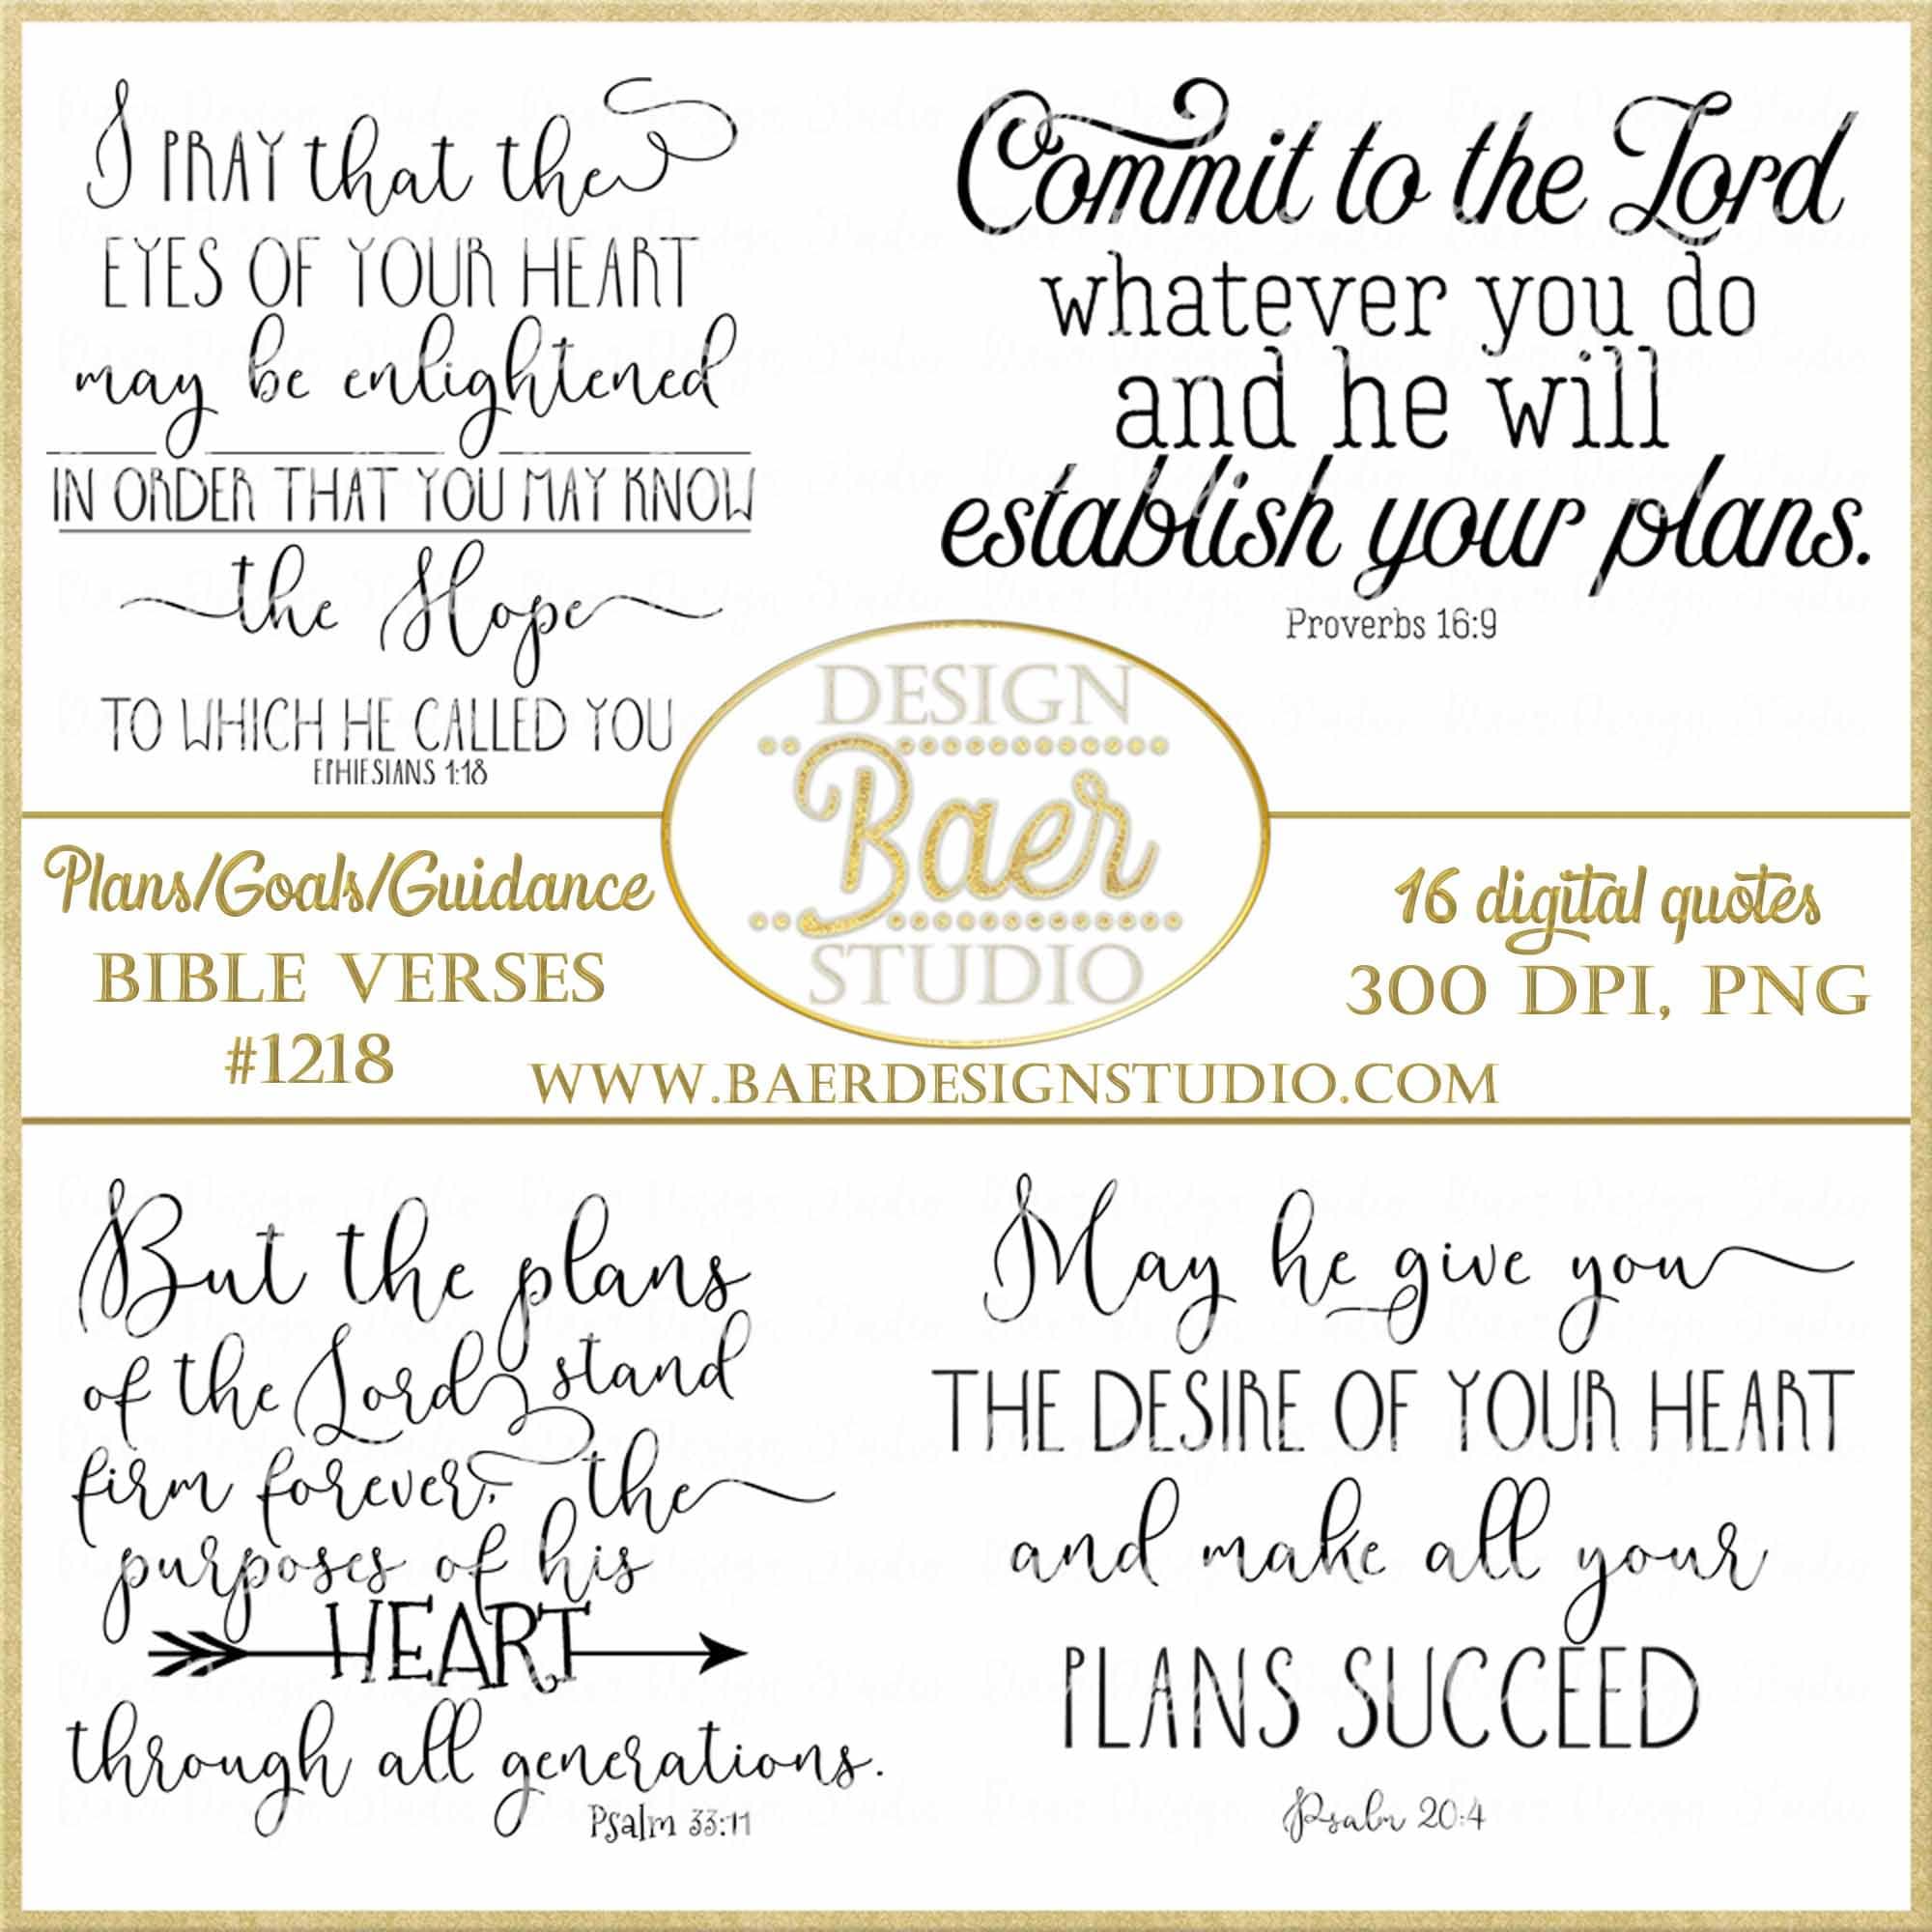 I PRAY that the
EYES OF YOUR HEART
may be enlightened
IN ORDER THAT YOU MAY KNOW
the Hope
TO WHICH HE CALLED YOU
EPHIESIANS 1:18
Commit to the Lord
whatever you do
and he will
establish your plans.
Proverbs 16:9
Plans/Goals/Guidance
BIBLE VERSES
#1218
DESIGN
Baer
STUDIO
16 digital quotes
300 DPI, PNG
WWW.BAERDESIGNSTUDIO.COM
But the plans
of the Lord stand
firm forever, the
purposes of his
HEART
through all generations.
Psalm 33:11
May he give you
THE DESIRE OF YOUR HEART
and make all your
PLANS SUCCEED
Psalm 20:4